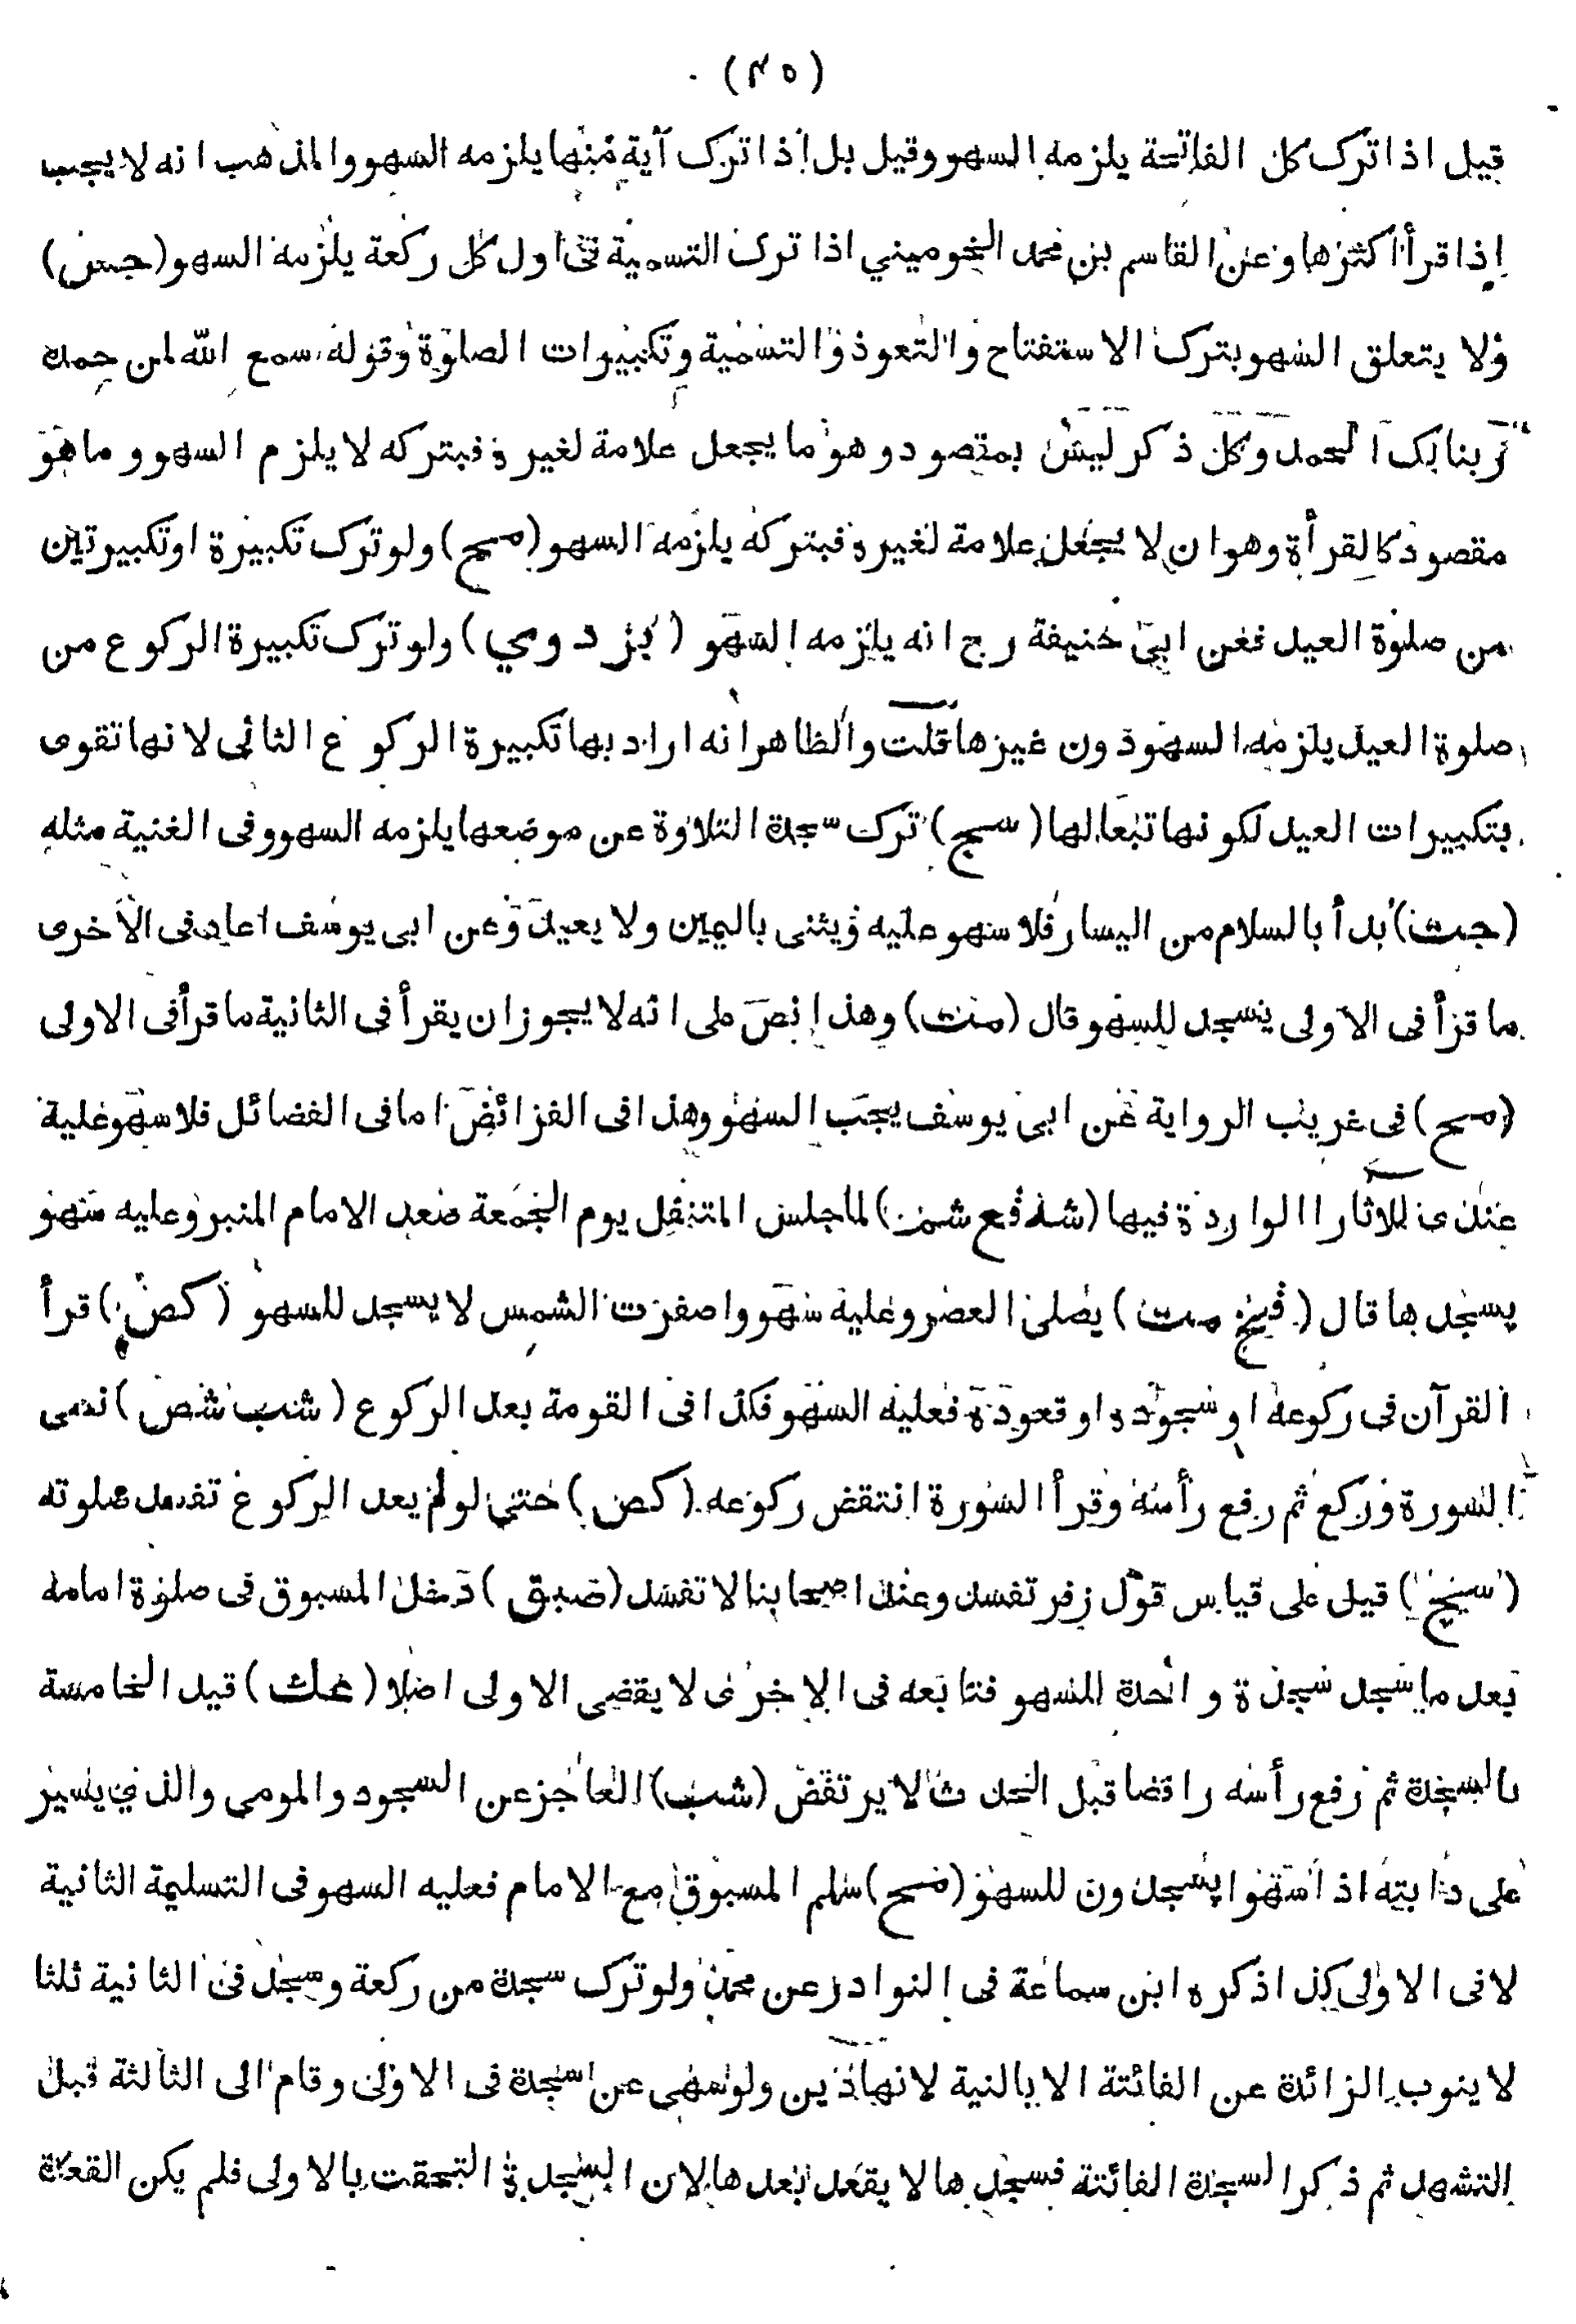 (٣٥)
قيل اذا ترك كل الفاتحة يلزمه السهو وقيل بل إذا ترك آية منها يلزمه السهو والمذهب انه لا يجب
إذا قرأ أكثرها وعن القاسم بن محمد النجوميني اذا ترك التسمية في اول كل ركعة يلزمه السهو (جس)
ولا يتعلق السهو بترك الاستفتاح والتعوذ والتسمية وتكبيرات الصلوة وقوله سمع الله لمن حمده
ربنا لك الحمد وكل ذكر ليس بمقصود وهو ما يجعل علامة لغيره فبتركه لا يلزم السهو وما هو
مقصود كالقرأة وهو ان لا يجعل علامة لغيره فبتركه يلزمه السهو (مح) ولو ترك تكبيرة او تكبيرتين
من صلوة العيد فعن ابى حنيفة رح انه يلزمه السهو (بزدوي) ولو ترك تكبيرة الركوع من
صلوة العيد يلزمه السهو دون غيرها قلت والظاهر انه اراد بها تكبيرة الركوع الثانى لانها تقوى
بتكبيرات العيد لكونها تبعا لها (سج) ترك سجدة التلاوة عن موضعها يلزمه السهو وفى الغنية مثله
(جت) بدأ بالسلام من اليسار فلا سهو عليه ويثنى باليمين ولا يعيد وعن ابى يوسف اعاد فى الأخرى
ما قرأ فى الاولى يسجد للسهو قال (مت) وهذا نص على انه لا يجوز ان يقرأ فى الثانية ما قرأ فى الاولى
(مح) فى غريب الرواية عن ابى يوسف يجب السهو وهذا فى الفرائض اما فى الفضائل فلا سهو عليه
عندى للاثار الواردة فيها (شد فع شمن) لما جلس المتنفل يوم الجمعة صعد الامام المنبر وعليه سهو
يسجد ها قال (فيخ مت) يصلى العصر وعليه سهو واصفرت الشمس لا يسجد للسهو (كص) قرأ
القرآن فى ركوعه او سجوده او قعوده فعليه السهو فكذا فى القومة بعد الركوع (شب شص) نسى
السورة وركع ثم رفع رأسه وقرأ السورة انتقض ركوعه (كص) حتى لو لم يعد الركوع تفسد صلوته
(سيخ) قيل على قياس قول زفر تفسد وعند اصحابنا لا تفسد (ضبق) دخل المسبوق فى صلوة امامه
بعد ما سجد سجدة واحدة للسهو فتابعه فى الاخرى لا يقضى الاولى اصلا (عك) قيد الخامسة
بالسجدة ثم رفع رأسه رافضا قبل الحدث لا يرتفض (شب) العاجز عن السجود والمومى والذي يسير
على دابته اذا سهوا يسجدون للسهو (مح) سلم المسبوق مع الامام فعليه السهو فى التسليمة الثانية
لا فى الاولى كذا ذكره ابن سماعة فى النوادر عن محمد ولو ترك سجدة من ركعة وسجد فى الثانية ثلثا
لا ينوب الزائدة عن الفائتة الا بالنية لانها دين ولو سهى عن سجدة فى الاولى وقام الى الثالثة قبل
التشهد ثم ذكر السجدة الفائتة فسجد ها لا يقعد بعد ها لان السجدة التحقت بالاولى فلم يكن القعدة